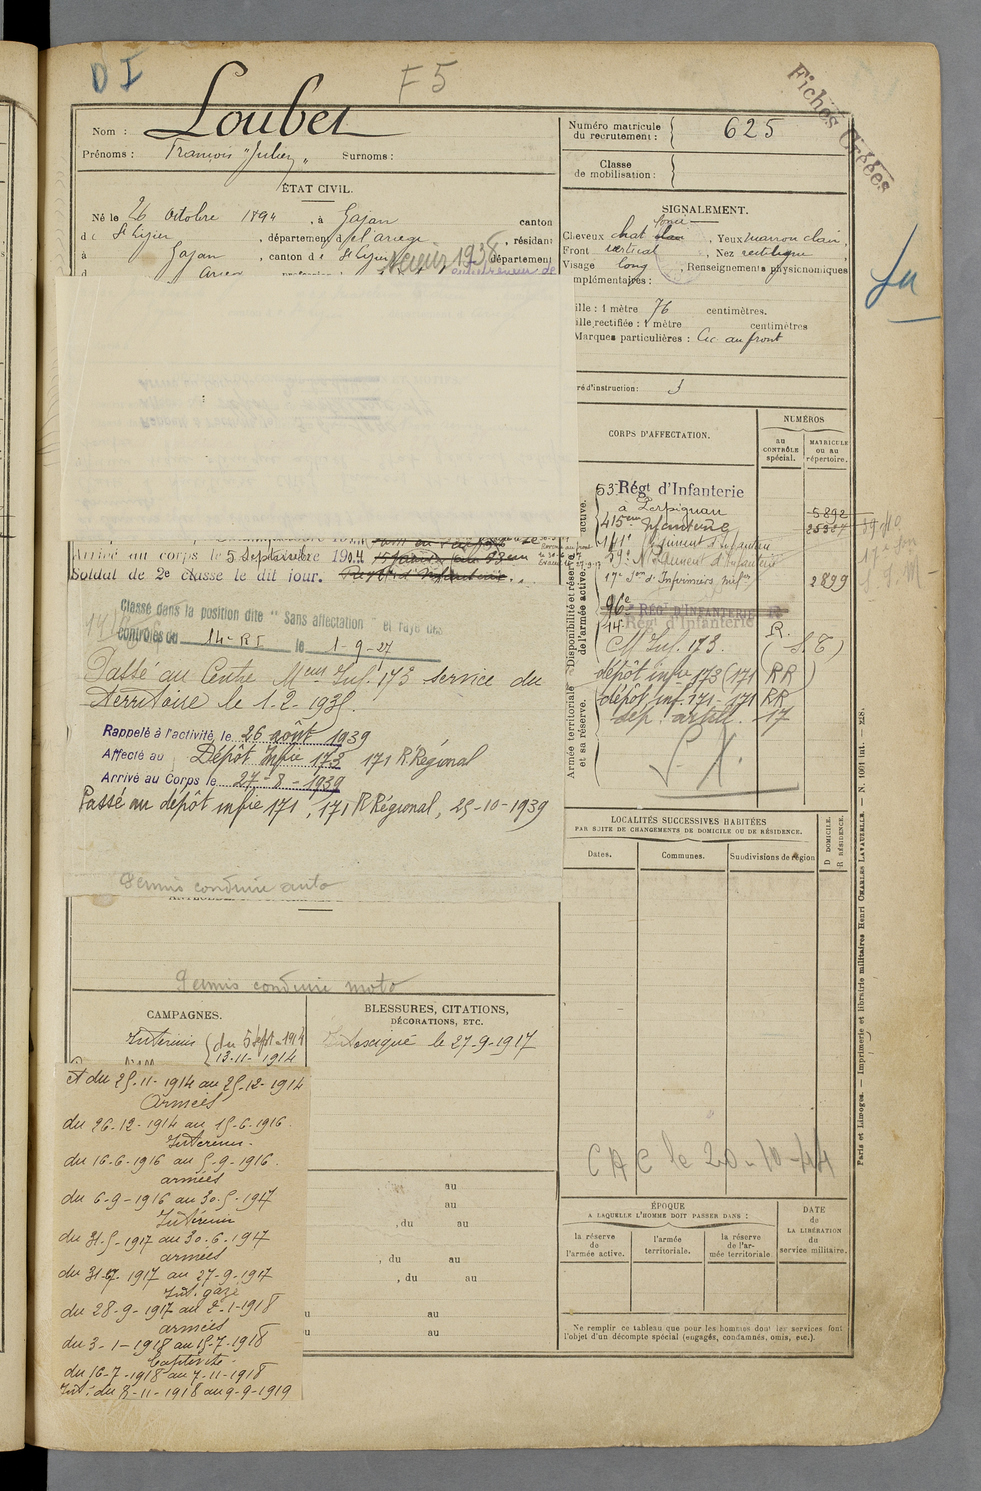 D I
F 5
Fichés Créées
Nom : Loubet
Prénoms : François "Julien" Surnoms :
Numéro matricule du recrutement : 625
Classe de mobilisation :
ÉTAT CIVIL.
Né le 26 Octobre 1894, à Gajan canton
de St Lizier, département de l'ariège, résidant
à Gajan, canton de St Lizier département
d
1938
SIGNALEMENT.
foncé
Cheveux chat clair, Yeux marron clair,
Front vertical, Nez rectiligne
Visage long, Renseignements physionomiques
mplémentaires :
ille : 1 mètre 76 centimètres.
ille rectifiée : 1 mètre centimètres
Marques particulières : Cic au front
ré d'instruction : 3
CORPS D'AFFECTATION.
NUMÉROS
au CONTRÔLE spécial.
MATRICULE ou au répertoire.
Disponibilité et réserve de l'armée active.
active.
53 Régt d'Infanterie
à Perpignan 5892
415eme Infanterie 25387
141e Régiment d'Infanterie
59e Régiment d'Infanterie
17e Son d'Infirmiers milres 2899
96e RÉGT D'INFANTERIE
14 Régt d'Infanterie R.
C M Inf. 173. (S.T)
dépôt infie 173 (171 RR)
dépôt inf. 171-171 RR
dep. artill. 17
Armée territoriale et sa réserve.
Arrivé au corps le 5 Septembre 190
Soldat de 2e classe le dit jour.
Classé dans la position dite "Sans affectation" et rayé des
contrôles du 14e RI le 1-9-27
Passé au Centre Meur Inf. 173 service du
Territoire le 1-2-1935.
Rappelé à l'activité, le 26 août 1939
Affecté au Dépôt Infie 173 171 R. Régional
Arrivé au Corps le 27-8-1939
Passé au dépôt infie 171, 171 R Régional, 25-10-1939
Permis conduire auto
Permis conduire moto
LOCALITÉS SUCCESSIVES HABITÉES
PAR SUITE DE CHANGEMENTS DE DOMICILE OU DE RÉSIDENCE.
Dates.
Communes.
Subdivisions de région
D DOMICILE.
R RÉSIDENCE.
CAMPAGNES.
Intérieur (du 5 sept-1914
13-11-1914
et du 25-11-1914 au 25-12-1914
Armées
du 26-12-1914 au 15-6-1916.
Intérieur.
du 16-6-1916 au 5-9-1916.
armées
du 6-9-1916 au 30-5-1917
Intérieur
du 31-5-1917 au 30-6-1917
armées
du 31-7-1917 au 27-9-1917
Int. gazé
du 28-9-1917 au 2-1-1918
armées
du 3-1-1918 au 15-7-1918
Captivité.
du 16-7-1918 au 7-11-1918
Int: du 8-11-1918 au 9-9-1919
BLESSURES, CITATIONS,
DÉCORATIONS, ETC.
Intoxiqué le 27-9-1917
au
au
, du au
, du au
, du au
au
au
CAC le 20-10-44
ÉPOQUE
A LAQUELLE L'HOMME DOIT PASSER DANS :
la réserve de l'armée active.
l'armée territoriale.
la réserve de l'armée territoriale.
DATE de LA LIBÉRATION du service militaire.
Ne remplir ce tableau que pour les hommes dont les services font
l'objet d'un décompte spécial (engagés, condamnés, omis, etc.).
Paris et Limoges. — Imprimerie et librairie militaires Henri CHARLES LAVAUZELLE. — N. 1601 int. — 228.